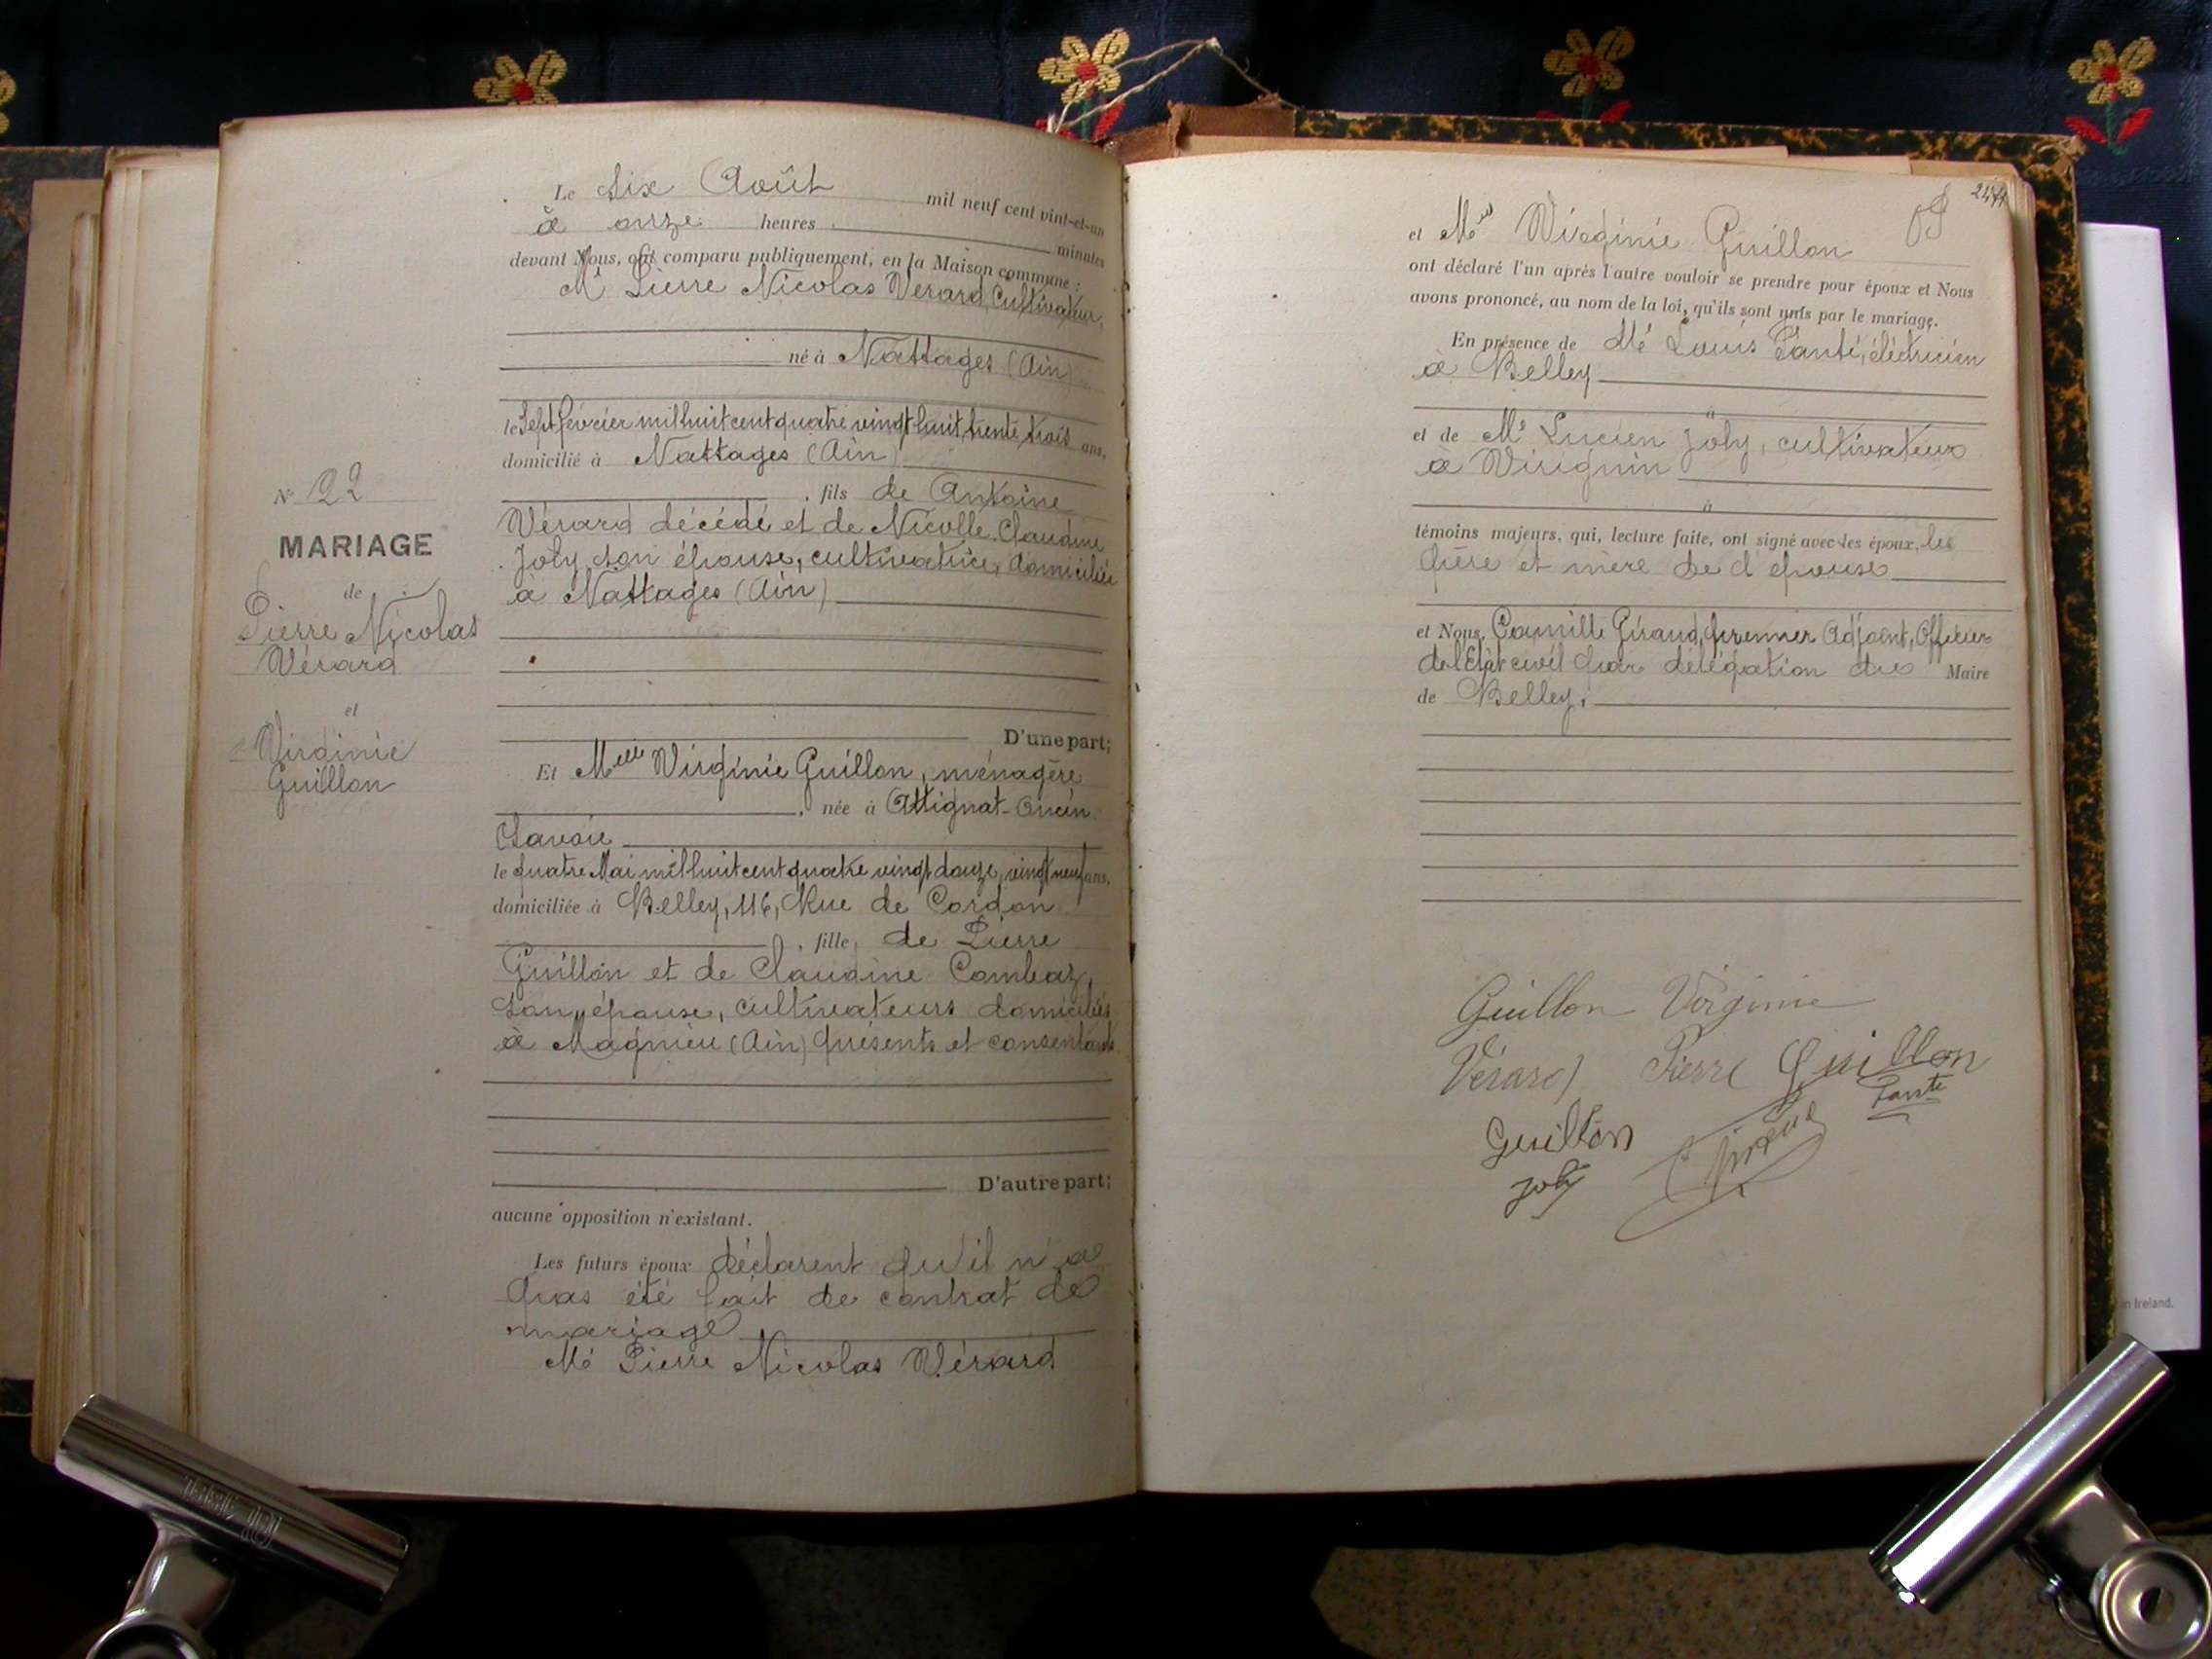 N° 22
MARIAGE
de
Pierre Nicolas
Vérard
et
Virginie
Guillon
Le six Août mil neuf cent vint-et-un
à onze heures minutes
devant Nous, ont comparu publiquement, en la Maison commune :
Mr Pierre Nicolas Vérard, Cultivateur,
né à Nattages (Ain)
le Sept février mil huit cent quatre vingt huit, trente trois ans,
domicilié à Nattages (Ain)
, fils de Antoine
Vérard décédé et de Nicolle Claudine
Joly son épouse, cultivatrice, domiciliée
à Nattages (Ain)
D'une part;
Et Melle Virginie Guillon, ménagère
, née à Attignat-Oncin
Savoie
le quatre Mai mil huit cent quatre vingt douze, vingt neuf ans,
domiciliée à Belley, 116, Rue de Cordon
, fille de Pierre
Guillon et de Claudine Combaz,
son épouse, cultivateurs domiciliés
à Magnieu (Ain) présents et consentants
D'autre part;
aucune opposition n'existant.
Les futurs époux déclarent qu'il n'a
pas été fait de contrat de
mariage
Mr Pierre Nicolas Vérard
et Melle Virginie Guillon
ont déclaré l'un après l'autre vouloir se prendre pour époux et Nous
avons prononcé, au nom de la loi, qu'ils sont unis par le mariage.
En présence de Mr Louis Panté, éléctricien
à Belley
à
et de Mr Lucien Joly, cultivateur
à Virignin
à
témoins majeurs, qui, lecture faite, ont signé avec les époux, les
père et mère de l'épouse
et Nous, Camille Giraud, premier Adjoint, Officier
de l'Etat civil par délégation du Maire
de Belley.
Guillon Virginie
Vérard Pierre Guillon
Panté
Guillon
Giraud
Joly
in Ireland.